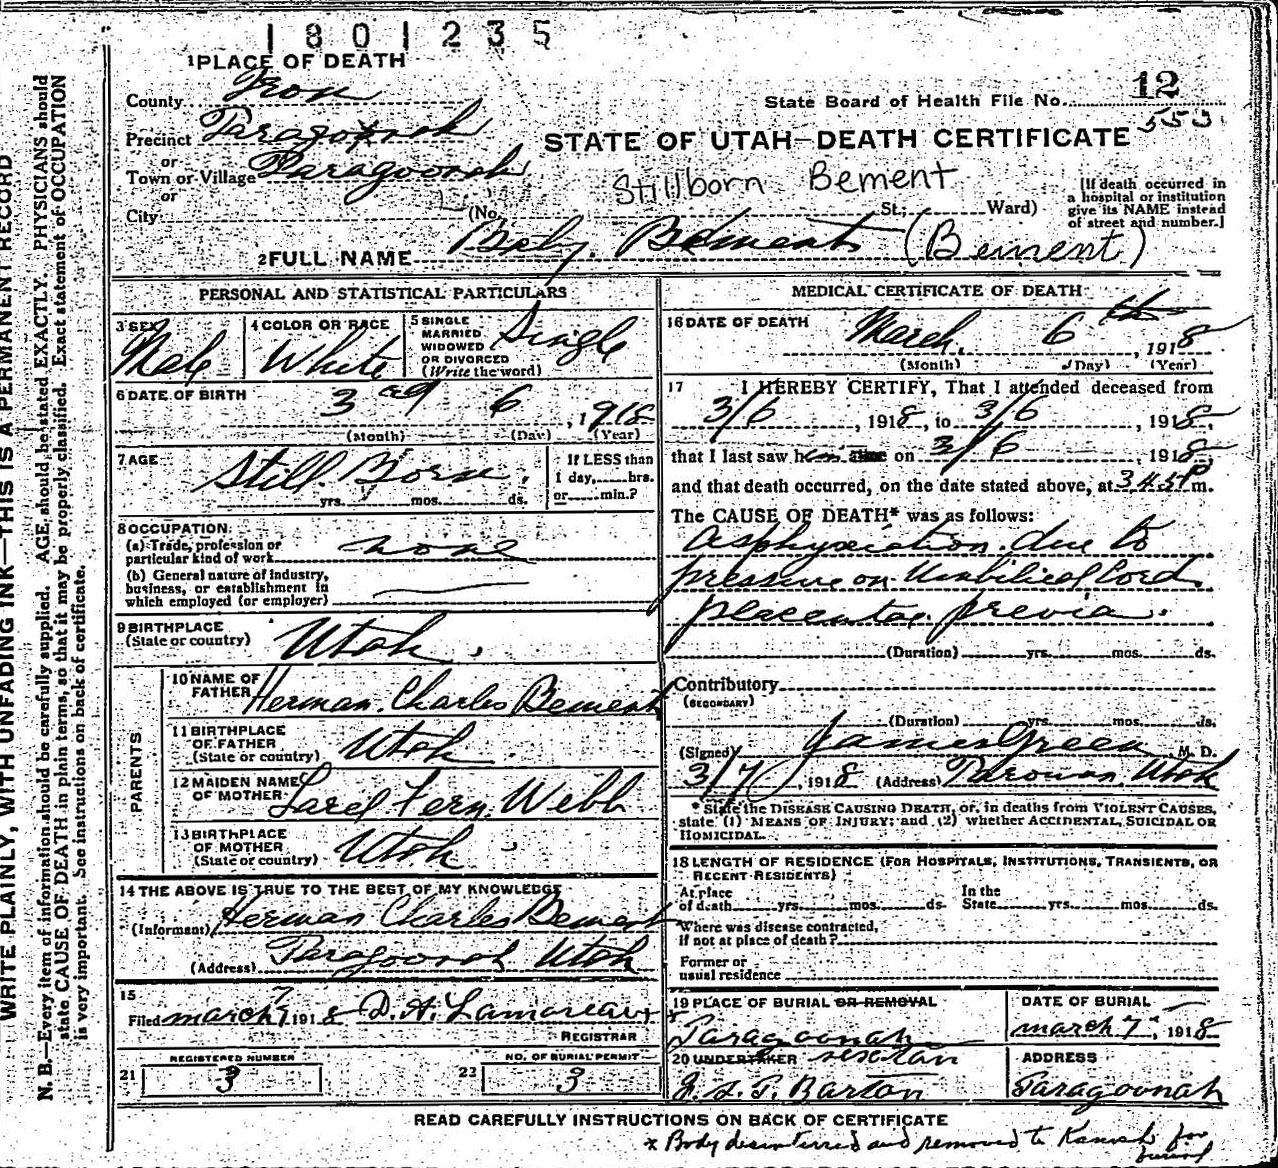 1801235
1 PLACE OF DEATH
County Iron
State Board of Health File No. 12
Precinct Paragoonah
553
STATE OF UTAH—DEATH CERTIFICATE
or
Town or Village Paragoonah
or
Stillborn Bement
City (No. St.; Ward)
[If death occurred in
a hospital or institution
give its NAME instead
of street and number.]
2 FULL NAME Baby. Bement (Bement)
PERSONAL AND STATISTICAL PARTICULARS
3 SEX Male
4 COLOR OR RACE White
5 SINGLE
MARRIED
WIDOWED
OR DIVORCED
(Write the word) Single
6 DATE OF BIRTH 3 6, 1918
(Month) (Day) (Year)
7 AGE Still Born.
yrs. mos. ds.
If LESS than
1 day, hrs.
or min.?
8 OCCUPATION
(a) Trade, profession or
particular kind of work none
(b) General nature of industry,
business, or establishment in
which employed (or employer)
9 BIRTHPLACE
(State or country) Utah.
PARENTS
10 NAME OF
FATHER Herman Charles Bement
11 BIRTHPLACE
OF FATHER
(State or country) Utah
12 MAIDEN NAME
OF MOTHER Fern Webb
13 BIRTHPLACE
OF MOTHER
(State or country) Utah
14 THE ABOVE IS TRUE TO THE BEST OF MY KNOWLEDGE
(Informant) Herman Charles Bement
(Address) Paragoonah Utah
15
Filed march 7 1918 D. A. Lamoreaux
REGISTRAR
REGISTERED NUMBER
21 3
NO. OF BURIAL PERMIT
23 3
MEDICAL CERTIFICATE OF DEATH
16 DATE OF DEATH March 6th, 1918
(Month) (Day) (Year)
17 I HEREBY CERTIFY, That I attended deceased from
3/6, 1918, to 3/6, 1918,
that I last saw h alive on 3/6, 1918,
and that death occurred, on the date stated above, at 3 45 P m.
The CAUSE OF DEATH* was as follows:
Asphyxiation due to
pressure on Umbilical Cord
placenta previa.
(Duration) yrs. mos. ds.
Contributory
(SECONDARY)
(Duration) yrs. mos. ds.
(Signed) James Green, M. D.
3/7, 1918 (Address) Parowan Utah
* State the DISEASE CAUSING DEATH, or, in deaths from VIOLENT CAUSES,
state (1) MEANS OF INJURY; and (2) whether ACCIDENTAL, SUICIDAL OR
HOMICIDAL.
18 LENGTH OF RESIDENCE (FOR HOSPITALS, INSTITUTIONS, TRANSIENTS, OR
RECENT RESIDENTS)
At place
of death yrs. mos. ds.
In the
State yrs. mos. ds.
Where was disease contracted,
if not at place of death?
Former or
usual residence
19 PLACE OF BURIAL OR REMOVAL
Paragoonah
DATE OF BURIAL
march 7, 1918
20 UNDERTAKER sexton
Barton
ADDRESS
Paragoonah
READ CAREFULLY INSTRUCTIONS ON BACK OF CERTIFICATE
x Body disinterred and removed to Kanosh for
burial
WRITE PLAINLY, WITH UNFADING INK—THIS IS A PERMANENT RECORD
N. B.—Every item of information should be carefully supplied. AGE should be stated EXACTLY. PHYSICIANS should
state CAUSE OF DEATH in plain terms, so that it may be properly classified. Exact statement of OCCUPATION
is very important. See instructions on back of certificate.